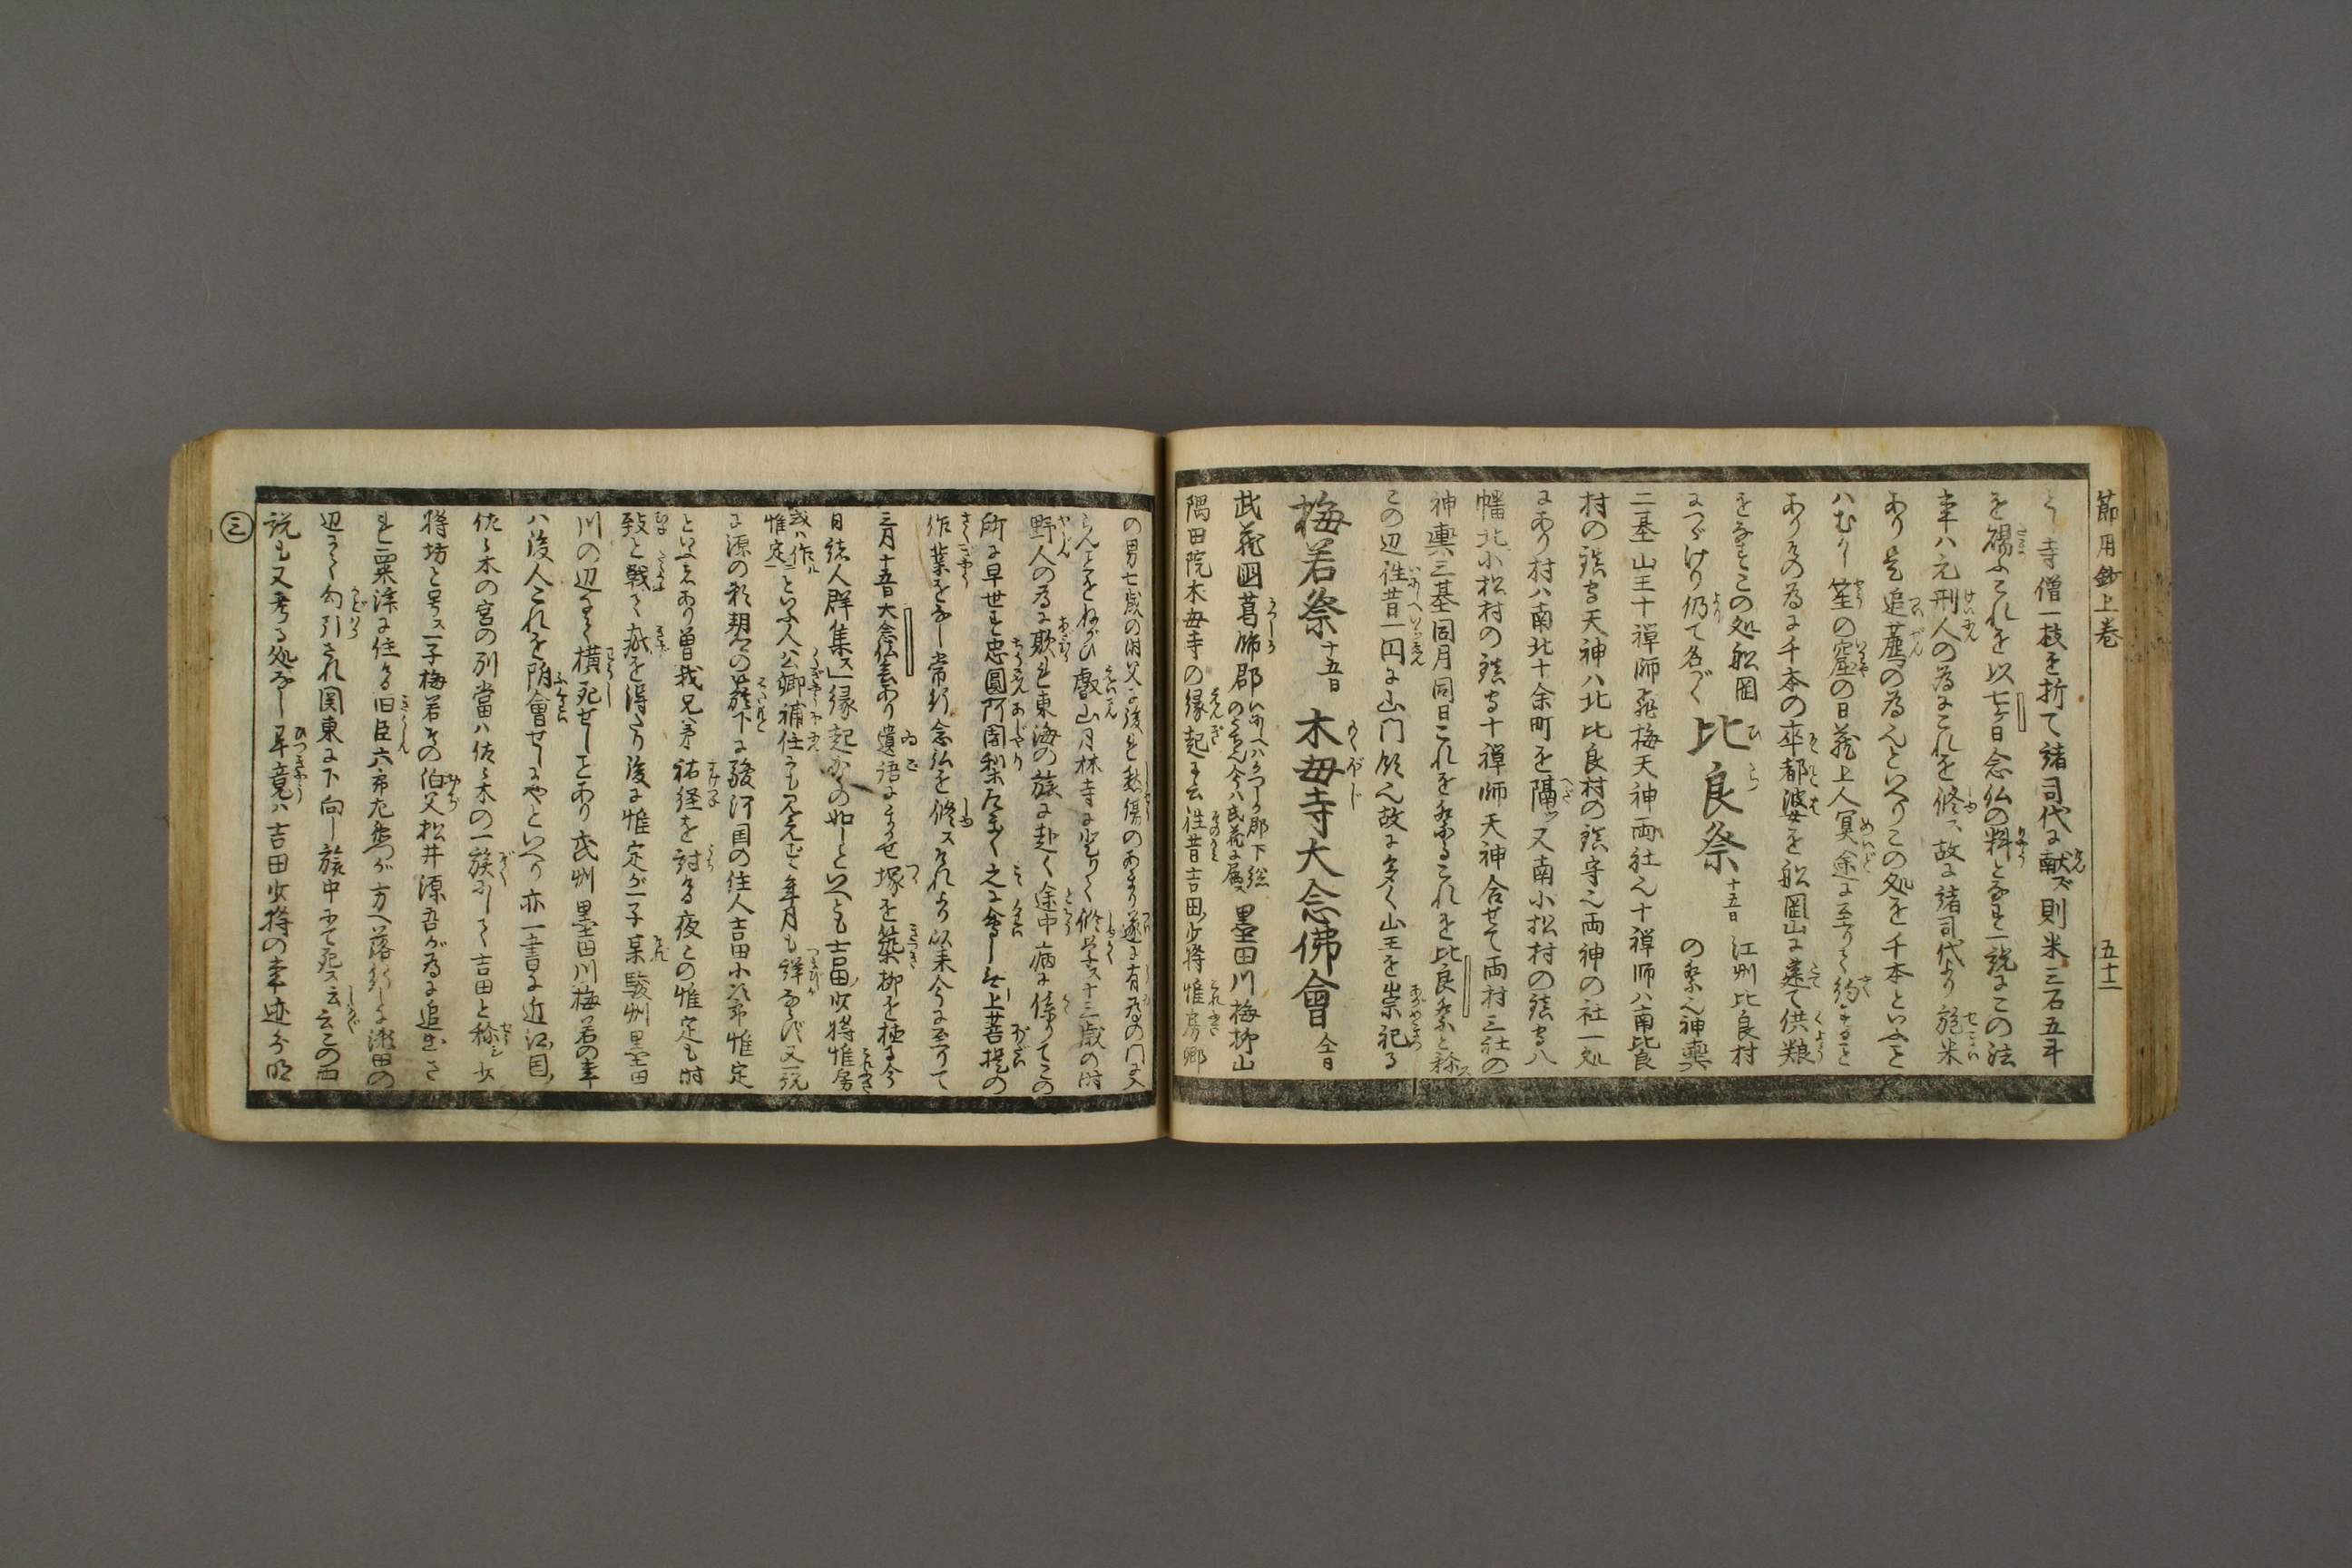 節用鈔上巻
五十二
う寺僧一枝を折て諸司代に献ズ則米三石五斗
を賜ふこれを以七ケ日念仏の料となす一説にこの法
事ハ元刑人の為にこれを修ス故に諸司代より施米
あり是追薦の為也といへりこの処を千本といふこと
ハむかし笙の窟の日蔵上人冥途に至りて約すること
ありその為に千本の卒都婆を舩岡山に建て供粮
をなすこの処舩岡
につゞけり仍て名づく
比良祭 十五日
江州比良村
の祭也神輿
二基山王十禅師飛梅天神両社也十禅師ハ南比良
村の鎮守天神ハ北比良村の鎮守也両神の社一処
にあり村ハ南北十余町を隔ツ又南小松村の鎮守八
幡北小松村の鎮守十禅師天神合せて両村三社の
神輿三基同月同日これを祭るこれを比良祭と称ス
この辺往昔一円に山門領也故に多く山王を崇祀る
梅若祭 十五日 木毎寺大念佛會 仝日
武蔵国葛飾郡 いにしへハかつしか郡下総のくに也今ハ武蔵に属ス 墨田川梅柳山
隅田院木毎寺の縁起に云往昔吉田少将惟房卿
の男七歳の時父に後を愁傷のあまり遂に有為の門に入
らんことをねがひ叡山月林寺に登りて修学ス十三歳の時
野人の為に欺れ東海の旅に赴く途中病に係りてこの
所に早世す忠圓阿闍梨たまたま之に會し無上菩提の
作業をなし常行念仏を修スそれより以来今に至りて
三月十五日大念仏会あり遺語にまかせ塚を築柳を植る今
日諸人群集ス縁起かくの如しといへとも吉田少将惟房
或ハ作ル惟定ニといふ人公卿補任にも見えず年月も詳ならず又一説
に源の頼朝公の旗下に駿河国の住人吉田小次郎惟定
といへるあり曽我兄弟祐経を討る夜この惟定も時
致と戦て疵を得たり後に惟定が一子某駿州墨田
川の辺にて横死せしことあり武州墨田川梅若の事
ハ後人これを附會せしにやといへり亦一書に近江国
佐々木の宮の別當ハ佐々木の一族にして吉田と称シ少
将坊と号ス一子梅若その伯父松井源吾が為に追出さ
れ粟津に住る旧臣六郎左衛門が方へ落行しに瀬田の
辺にて勾引され関東に下向し旅中にて死ス云云この両
説も又考る処なし畢竟ハ吉田少将の事迹分明
三